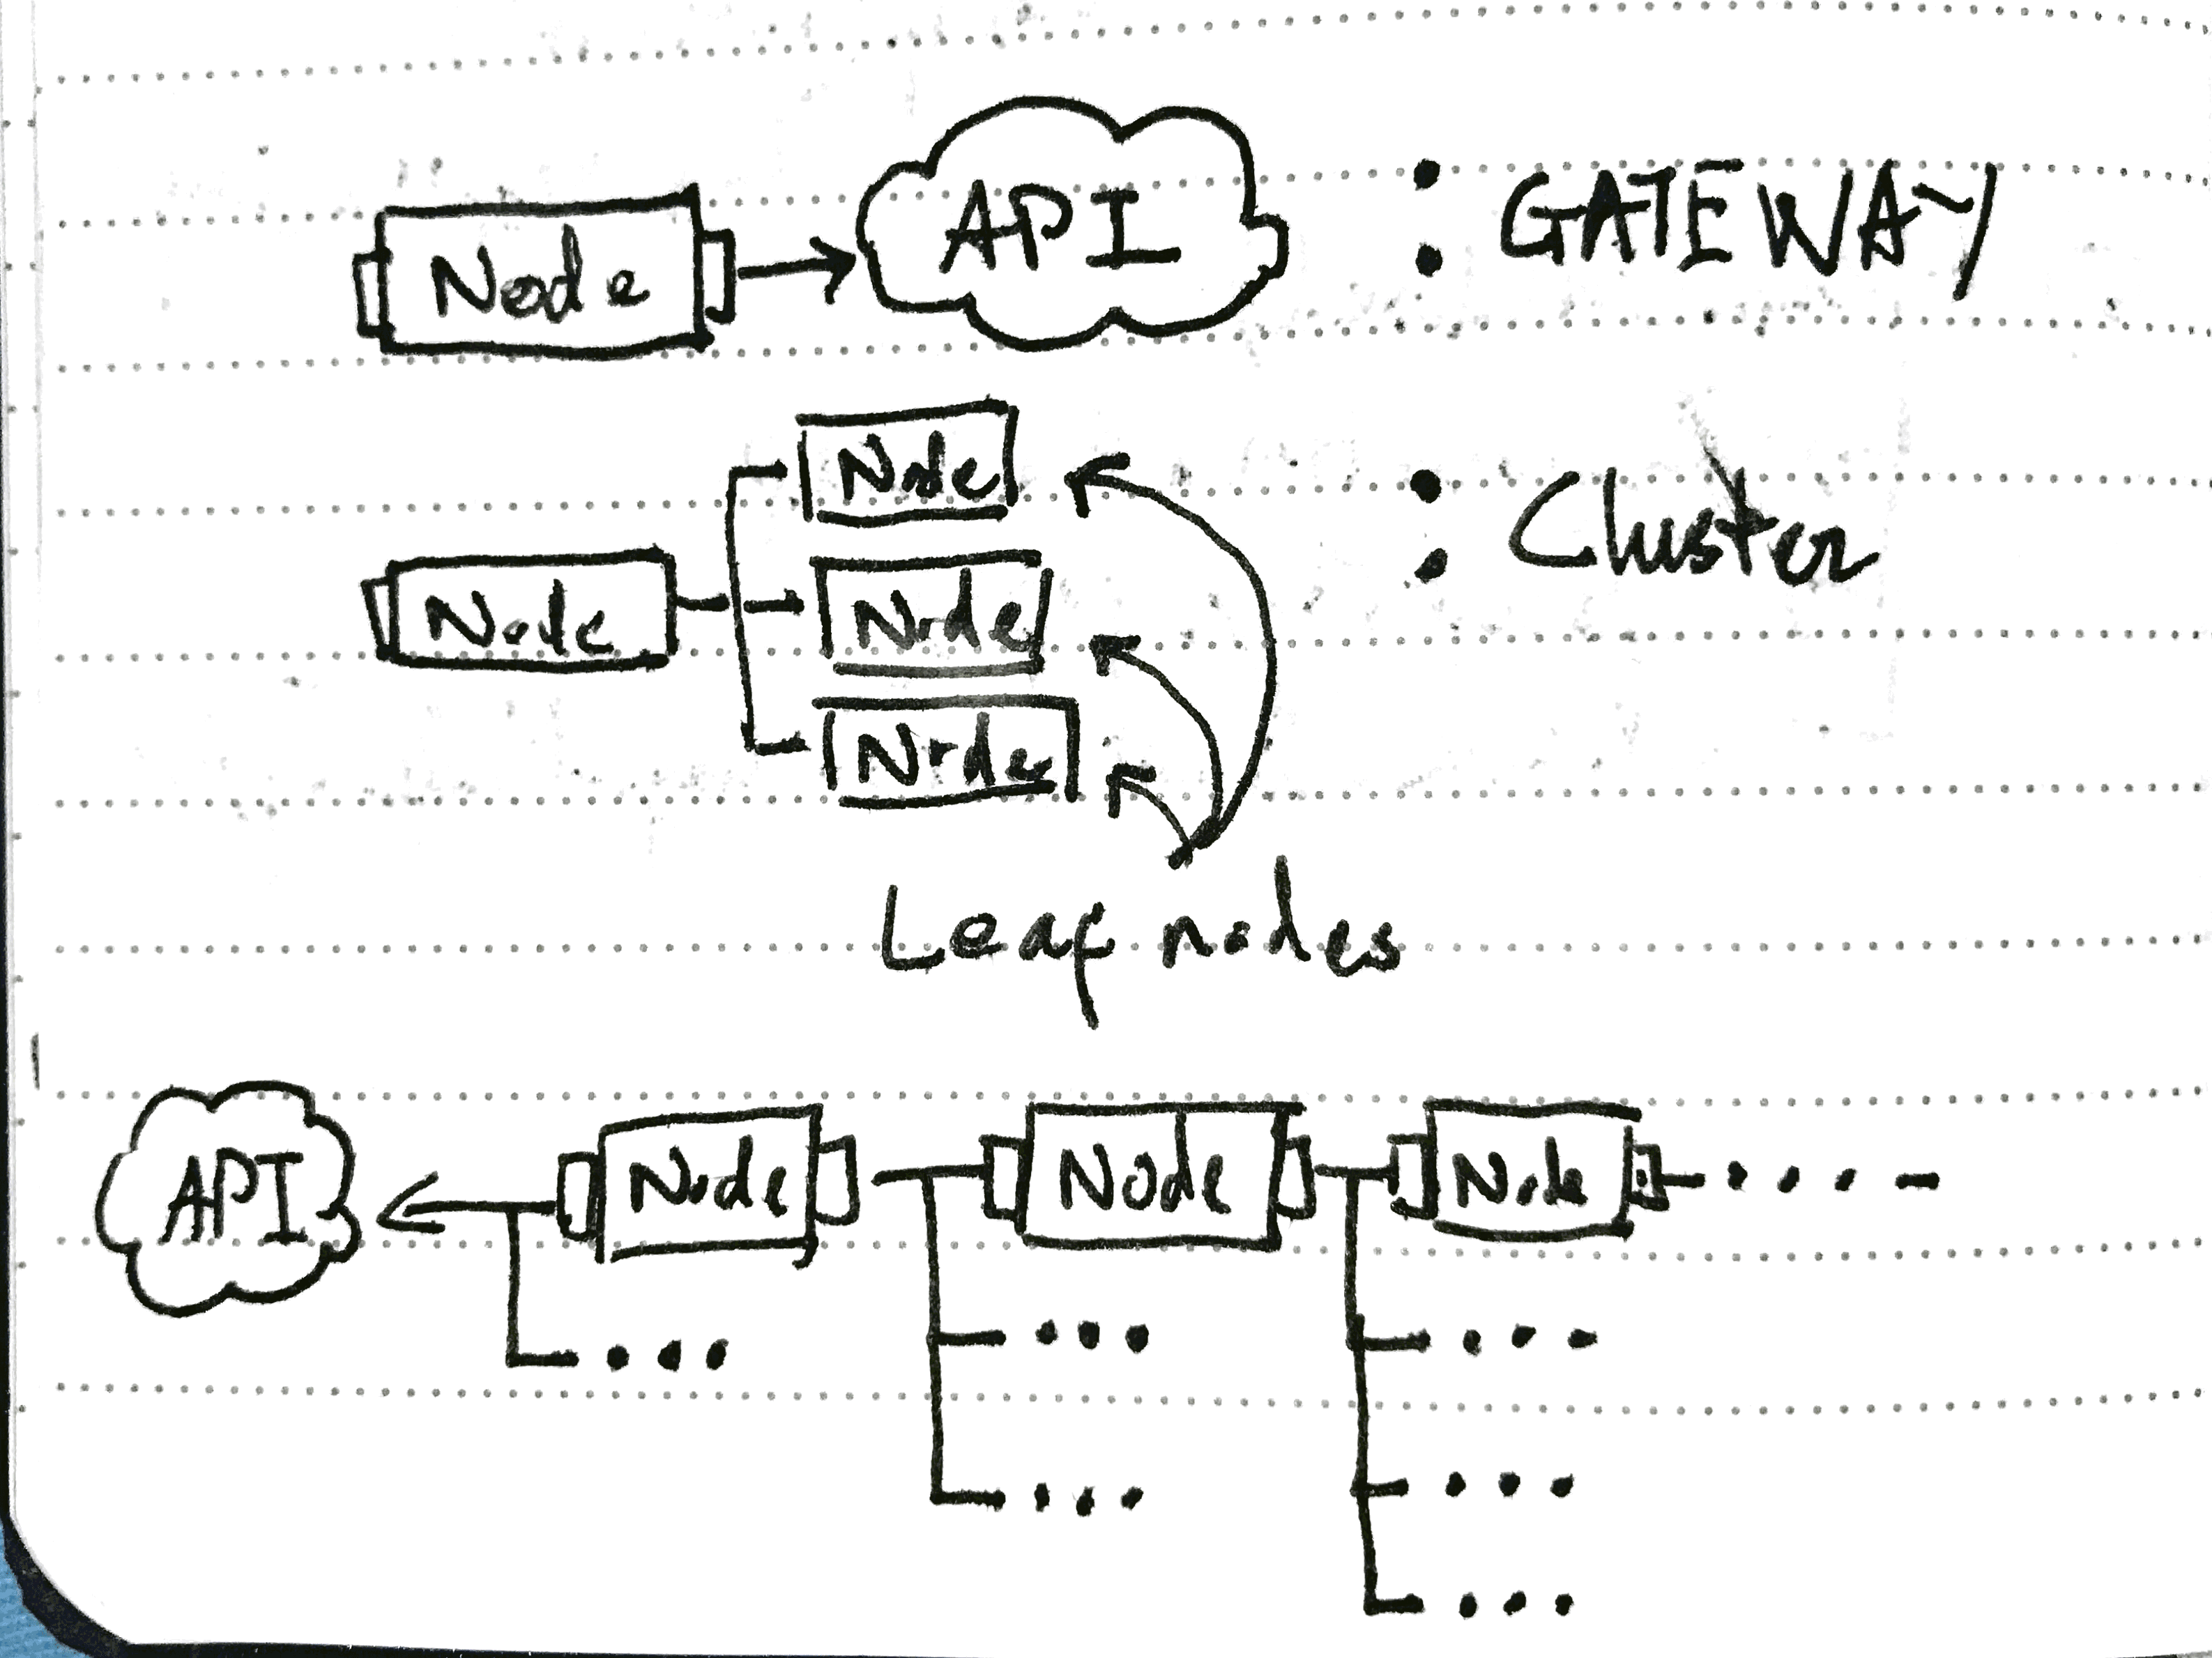 Node API : GATEWAY
Node
Node Node : Cluster
Node
Leaf nodes
API Node Node Node ....
...
... ...
... ...
...